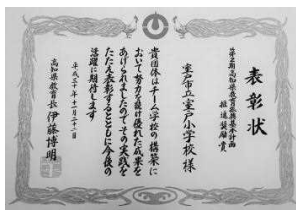 表彰状
第2期高知県教育振興基本計画
推進奨励賞
室戸市立室戸小学校様
貴団体はチーム学校の構築に
おいて努力を続け優れた成果を
あげられましたのでその実践を
たたえ表彰するとともに今後の
活躍に期待します
平成三十年十一月二十二日
高知県教育長 伊藤博明